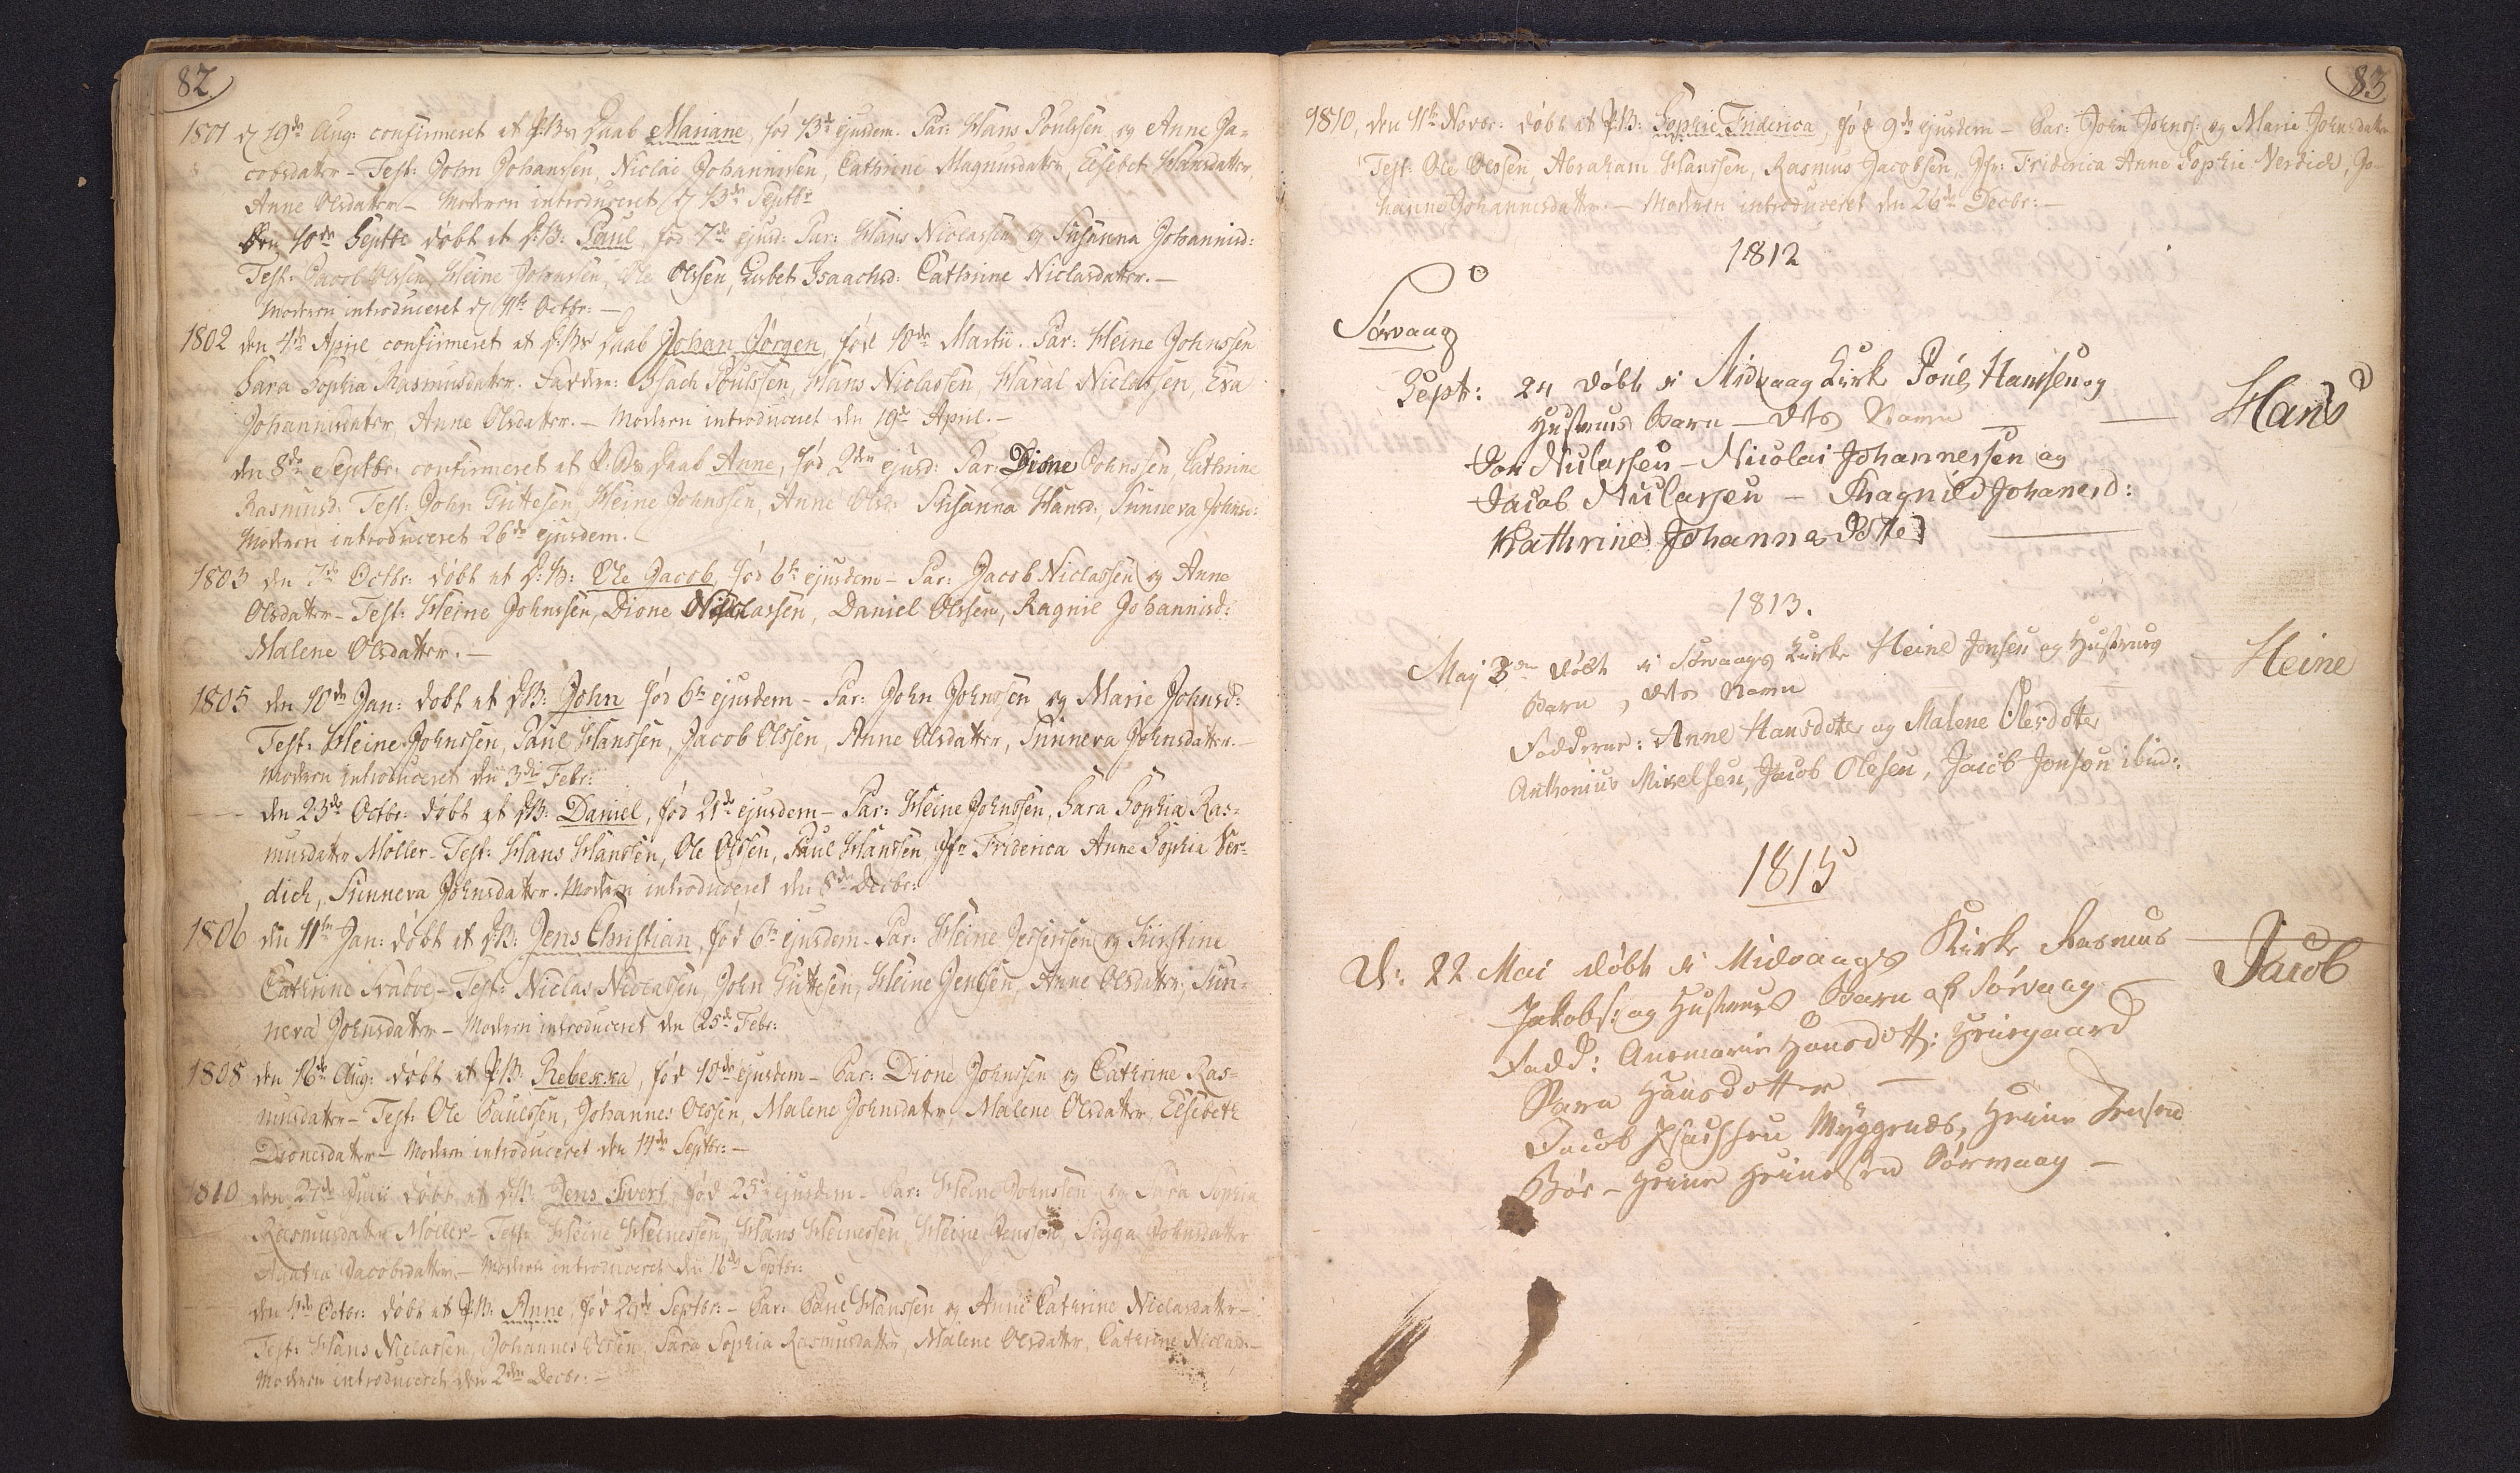 82.
1801 d 19de Aug: confirmeret et P:Bs Daab Mariane, fød 13d ejusdem. Par: Hans Poulssen, og Anne Ja-
cobsdatter - Test: John Johansen, Niclai Johannissen, Cathrine Magnusdatter, Elsebet Hansdatter,
Anne Olsdatter - Moderen introduceret d 13de Septbr
Den 10de Septbr døbt et P:B: Paul, fød 7de ejusd: Par: Hans Niclassen og Susanna Johannisd:
Test: Jacob Olssen, Heine Johnssen, Ole Olssen, Lisbet Isaachsd: Cathrine Niclasdatter. -
Moderen introduceret d 11te Octbr: -
1802 den 4de April confirmeret et P:Bs Daab Johan Jørgen, fød 10de Martii. Par: Heine Johnssen
Sara Sophia Rasmusdatter. Faddere: Isach Poulssen, Hans Niclassen, Haral Niclassen, Eva
Johannisdatter, Anne Olsdatter. - Moderen introduceret den 19de April. -
den 8de Septbr: confirmeret et P:Bs Daab Anne, fød 2den ejusd: Par: Dione Johnssen, Cathrine
Rasmusd: Test: John Guttesen, Heine Johnssen, Anne Olsd: Susanna Hansd:, Sunneva Johnsd:
Moderen introduceret 26de ejusdem. -
1803 den 7de Octbr: døbt et P:B: Ole Jacob, fød 6te ejusdem - Par: Jacob Niclassen og Anne
Olsdatter - Test: Heine Johnssen, Dione Niclassen, Daniel Olssen, Ragnil Johannisd:
Malene Olsdatter. -
1805 den 10de Jan: døbt et P:B: John fød 6te ejusdem - Par: John Johnssen og Marie Johnsd:
Test: Heine Johnssen, Paul Hanssen, Jacob Olssen, Anne Olsdatter, Sunneva Johnsdatter. -
Moderen introduceret den 3die Febr:
- - den 23de Octbr: døbt et P:B: Daniel, fød 21de ejusdem - Par: Heine Johnssen, Sara Sophia Ras-
musdatter Møller - Test: Hans Hanssen, Ole Olssen, Paul Hanssen, Jfr Friderica Anne Sophia Ver-
dich, Sunneva Johnsdatter. Moderen introduceret den 8de Decbr:
1806 den 11te Jan: døbt et P:B: Jens Christian, fød 6te ejusdem - Par: Heine Jessersen og Kirstine
Cathrine Svaboe - Test: Niclas Niclassen, John Guttesen, Heine Jensen, Anne Olsdatter, Sun-
neva Johnsdatter - Moderen introduceret den 25de Febr:
1808 den 16de Aug: døbt et P:B: Rebekka, fød 10de ejusdem - Par: Dione Johnssen og Cathrine Ras-
musdatter - Test: Ole Paulssen, Johannes Olssen, Malene Johnsdatter, Malene Olsdatter, Elsebeth
Dionesdatter - Moderen introduceret den 14de Septbr: -
1810 den 27de Julii døbt et P:B: Jens Sivert, fød 25de ejusdem - Par: Heine Johnssen og Sara Sophia
Rasmusdatter Møller - Test: Heine Heinessen, Hans Heinessen, Heine Jenssen, Sigga Johnsdatter
Agatha Jacobsdatter - Moderen introduceret den 16de Septbr:
den 4de Octbr: døbt et P:B: Anne, fød 29de Septbr: - Par: Paul Hanssen og Anne Cathrine Niclasdatter -
Test: Hans Niclassen, Johannes Olssen, Sara Sophia Rasmusdatter, Malene Olsdatter, Cathrine Niclasd: -
Moderen introduceret den 2den Decbr: -
83
1810, den 11te Novbr: døbt et P:B: Sophie Friderica, fød 9de ejusdem - Par: John Johnss: og Marie Johnsdatter
Test: Ole Olssen, Abraham Hanssen, Rasmus Jacobsen, Jfr: Friderica Anne Sophie Verdich, Jo-
hanne Johannisdatter. - Moderen introduceret den 26de Decbr: -
1812
Sørvaag
Sept: 24 døbt i Midvaag Kirk Poul Hanssen og
Hustrues Barn - dets Navn - - Hans
Jon Niclassen - Nicolai Johannessen og
Jacob Niclassen - Ragnild Johanesd:
Kathrine Johannes Dtter
1813.
May 3de døbt i Sørvaags Kirke Heine Jonsen og Hustrues
Barn, dets Navn Heine
Fadderne: Anne Hansdotter og Malene Olesdotter
Anthonius Mikelsen, Jacob Olesen, Jacob Jonson ibid:
1815
D: 22 Mai døbt i Midvaags Kirke Rasmus
Jakobs: og Hustrues Barn af Sørvaag Jacob
Fadd: Anemarie Hansdott:
Hansdotter -
Jacob Myggenæs, Heine Jensen
Bør - Heine Heinesen Sørvaag -